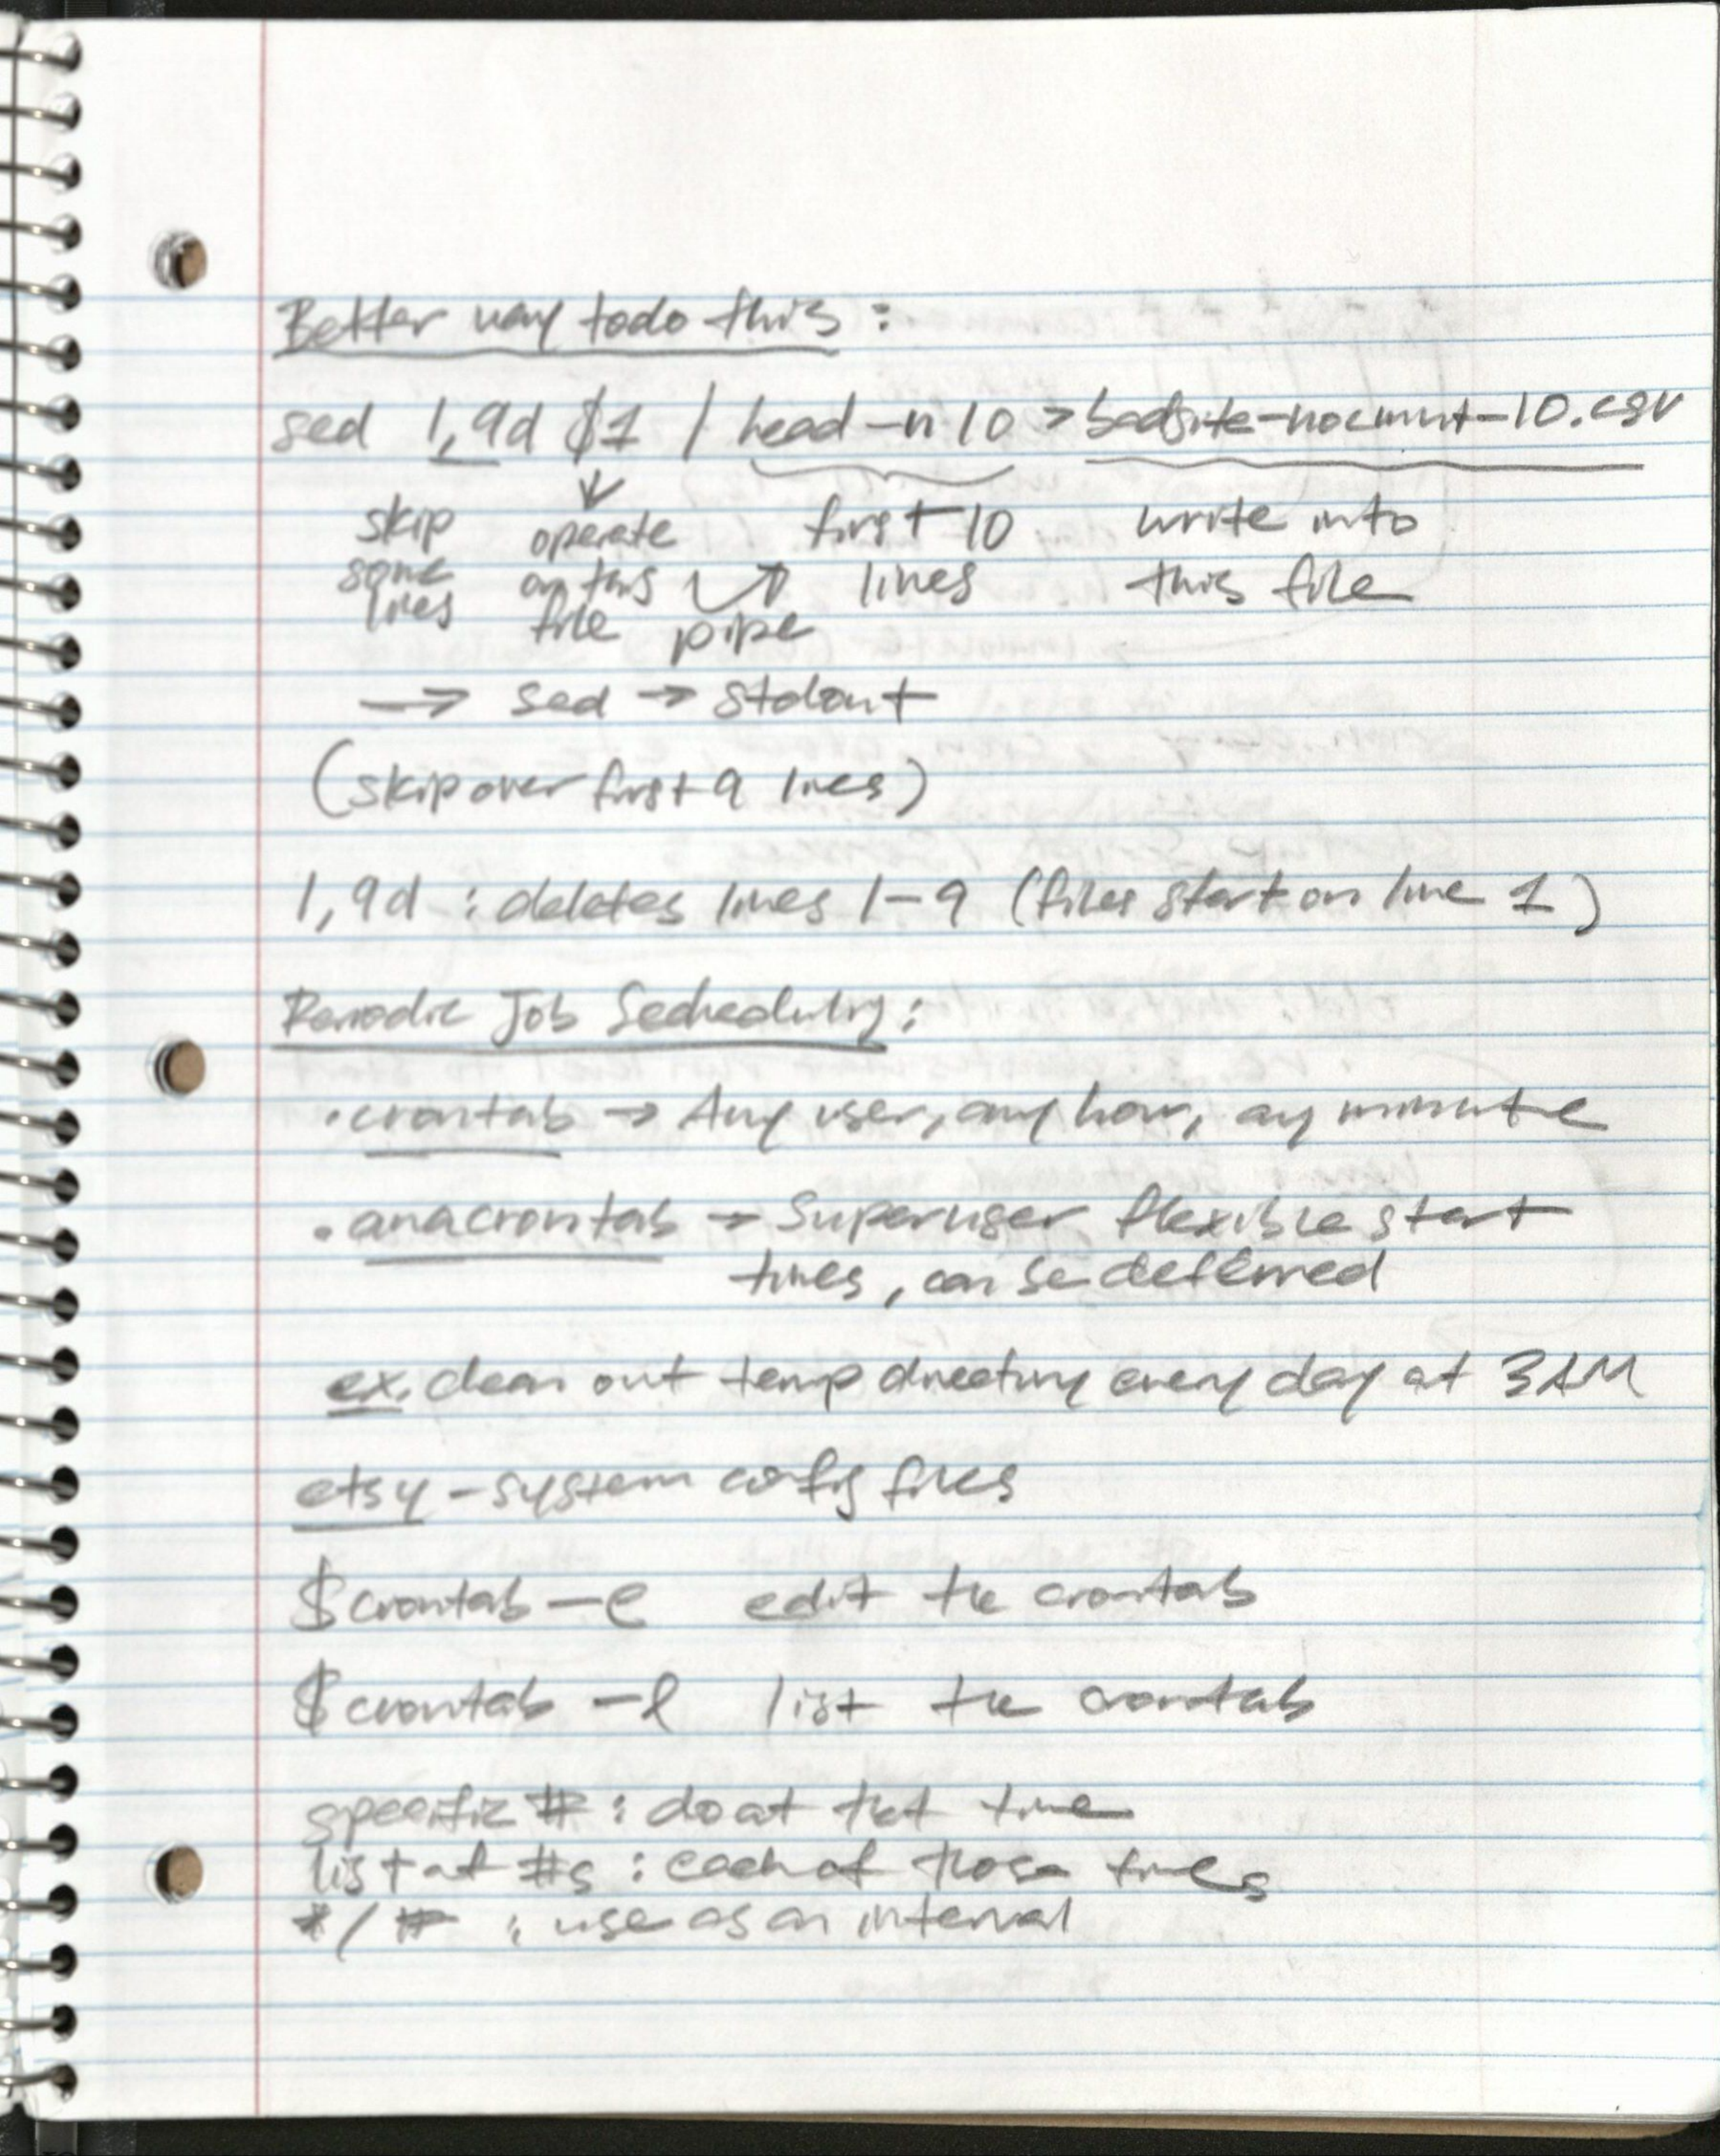 Better way todo this :
sed 1,9d $1 | head -n 10 > badsite-nocmnt-10.csv
skip operate first 10 write into
some on this lines this file
lines file pipe
→ sed → stdout
(skip over first 9 lines)
1,9d : deletes lines 1-9 (files start on line 1)
Periodic Job Sechedulng :
· crontab → Any user, any hour, any minute
· anacrontab → Superuser, flexible start
times, can be deferred
ex. clean out temp directory every day at 3AM
etsy - system config files
$ crontab -e edit the crontab
$ crontab -l list the crontab
specific # : do at that time
list of #s : each of those times
*/# : use as an interval